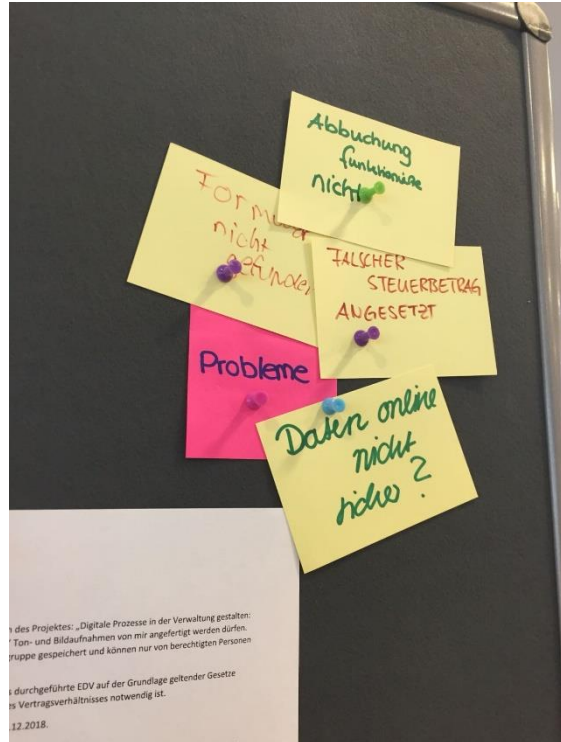 Abbuchung
funktionierte
nicht
Formular
nicht
gefunden
FALSCHER
STEUERBETRAG
ANGESETZT
Probleme
Daten online
nicht
sicher?
des Projektes: „Digitale Prozesse in der Verwaltung gestalten:
" Ton- und Bildaufnahmen von mir angefertigt werden dürfen.
gruppe gespeichert und können nur von berechtigten Personen
durchgeführte EDV auf der Grundlage geltender Gesetze
es Vertragsverhältnisses notwendig ist.
.12.2018.